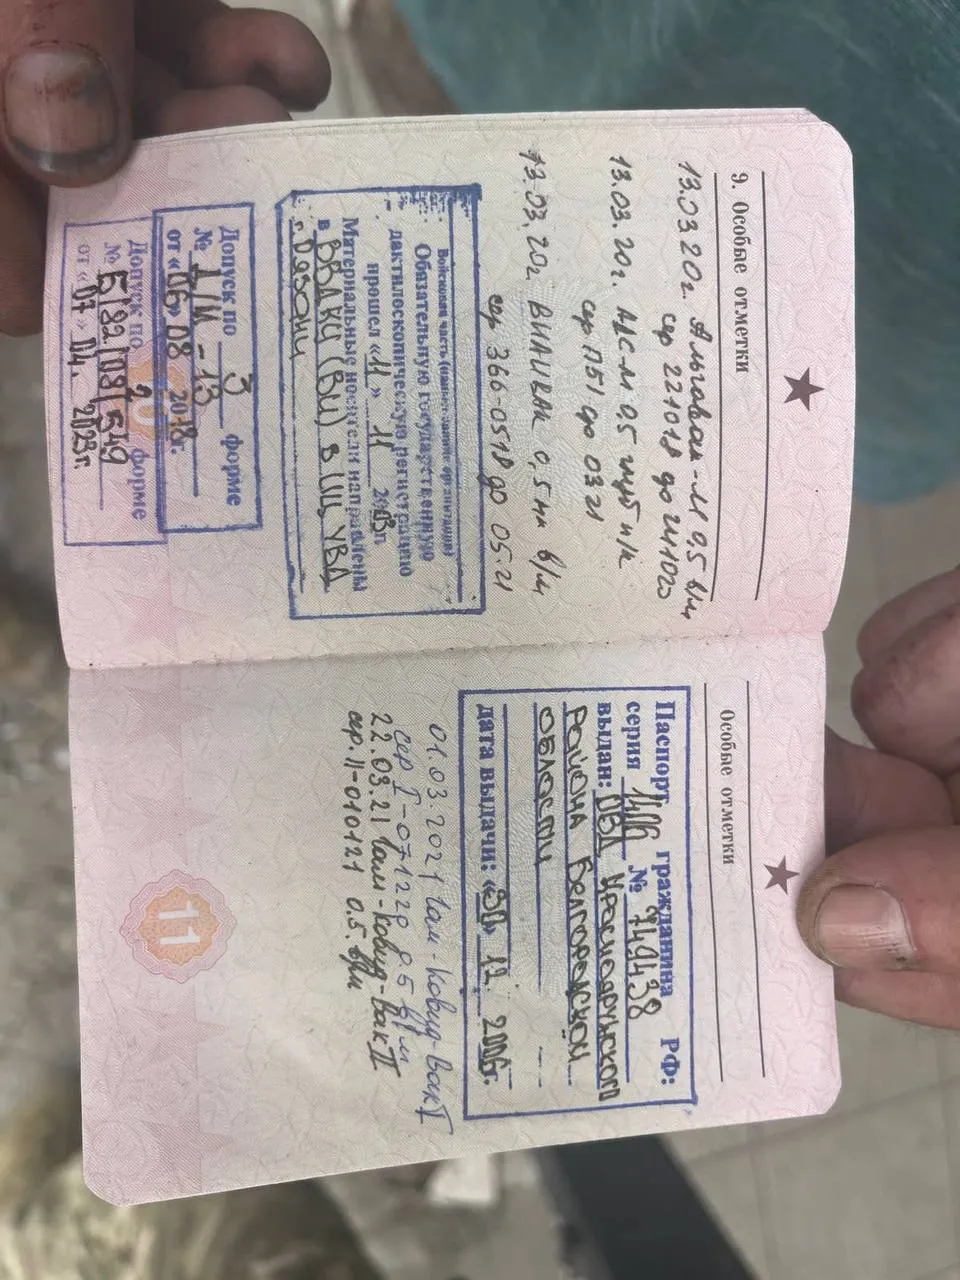 9. Особые отметки
13.03.20г. Альговак-М 0,5 в/м
сер 221018 до 241020
13.03.20г. АДС-М 0.5 п/к
сер П51 до 0321
13.03.20г. ВИАНВМ 0,5мл в/м
сер 366-0518 до 05.21
Войсковая часть (наименование организации)
Обязательную государственную
дактилоскопическую регистрацию
прошел «11» 11 2013г.
Материальные носители направлены
в ВВДКУ (ВИ) в ИЦ УВД
г. Рязани
Допуск по 3 форме
№ 1/ДИ-13
от «06» 08 2018г.
Допуск по 2 форме
№ Б/82/08/549
от «07» 04. 2023г.
Особые отметки
Паспорт гражданина РФ:
серия 1406 № 749438
выдан: ОВД Краснояружского
района Белгородской
области
дата выдачи: «30» 12 2006г.
01.03.2021 Гам-Ковид-Вак I
сер I-071220 0,5 в/м
22.03.21 Гам-Ковид-Вак II
сер. II-010121 0.5. в/м
11